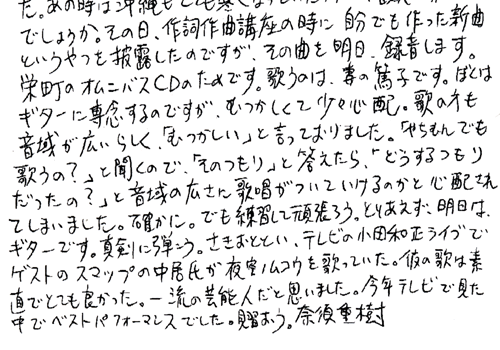 た。あの時は沖縄もとても寒く
でしょうか。その日、作詞作曲講座の時に自分でも作った新曲
というやつを披露したのですが、その曲を明日、録音します。
栄町のオムニバスCDのためです。歌うのは、妻の篤子です。ぼくは
ギターに専念するのですが、むつかしくて少々心配。歌の方も
音域が広いらしく、「むつかしい」と言っておりました。「やちもんでも
歌うの?」と聞くので、「そのつもり」と答えたら、「どうするつもり
だったの?」と音域の広さに歌唱がついていけるのかと心配され
てしまいました。確かに。でも練習して頑張ろう。とりあえず、明日は、
ギターです。真剣に弾こう。さきおととい、テレビの小田和正ライブで
ゲストのスマップの中居氏が夜空ノムコウを歌っていた。彼の歌は素
直でとても良かった。一流の芸能人だと思いました。今年テレビで見た
中でベストパフォーマンスでした。見習おう。奈須重樹